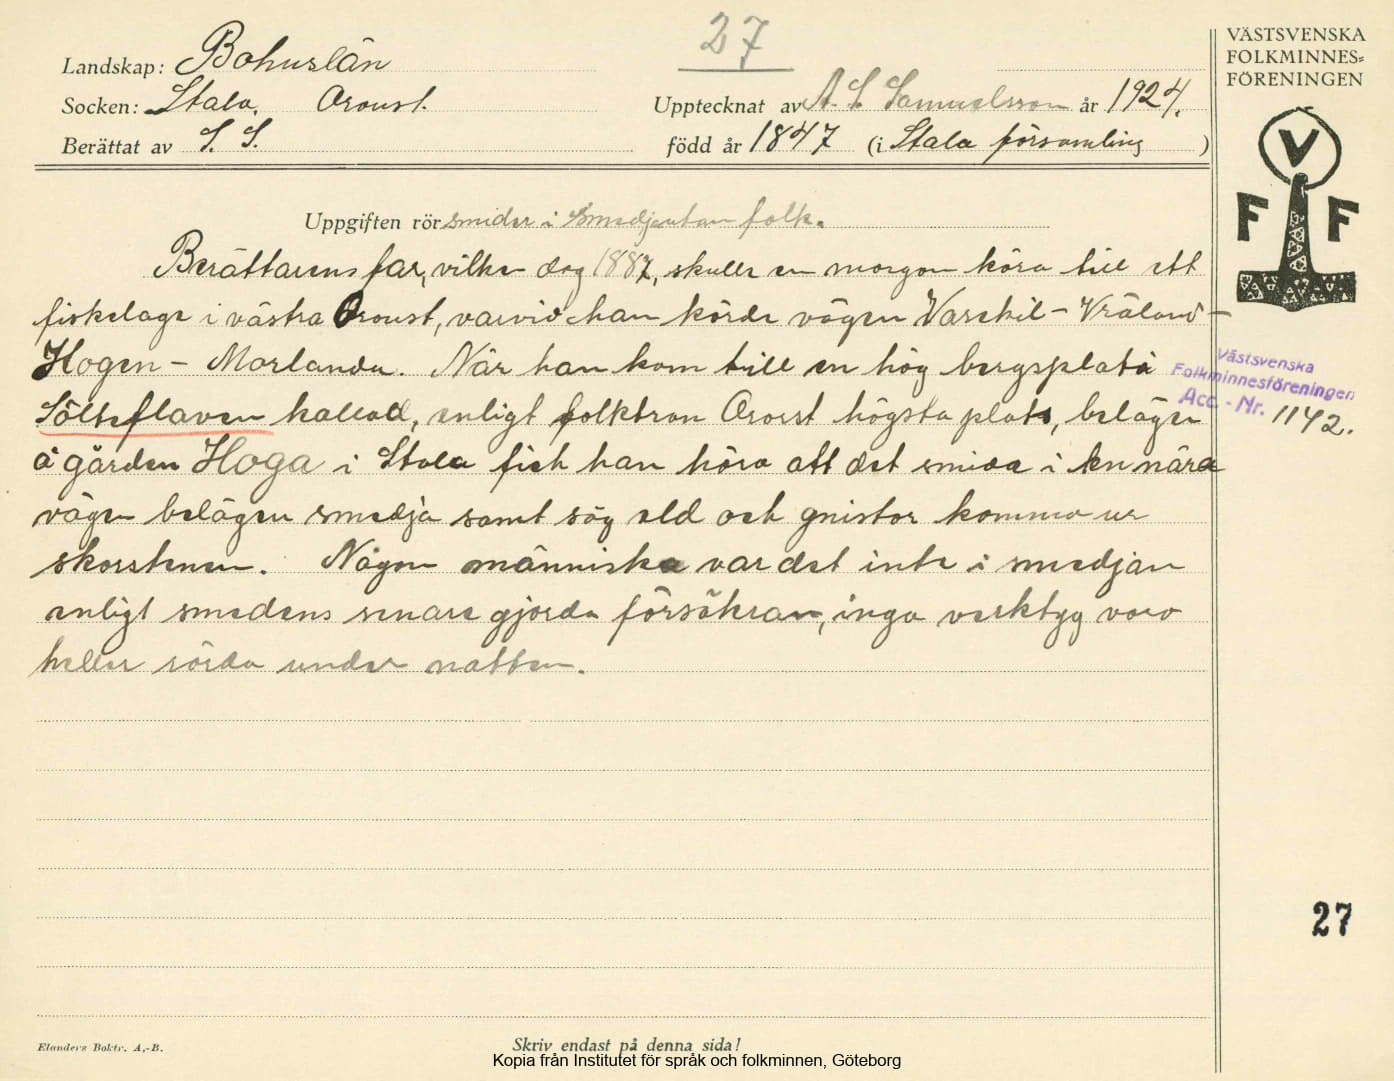 27
VÄSTSVENSKA
FOLKMINNES=
FÖRENINGEN
Landskap: Bohuslän
Socken: Stala. Oroust.
Upptecknat av A. S. Samuelsson år 1924.
Berättat av S. S.
född år 1847 (i Stala församling)
V
F F
Uppgiften rör smider i Smedjan utan folk.
Berättarens far, vilken dog 1887, skulle en morgon köra till ett
fiskelage i västra Oroust, varvid han körde vägen Varekil - Vräland -
Hogen - Morlanda. När han kom till en hög bergsplatå
Sölteflaven kallad, enligt folktron Orosst högsta plats, belägen
å gården Hoga i Stala fick han höra att det smides i en nära
vägen belägen smedja samt såg eld och gnistor komma ur
skorstenen. Någon människa var det inte i smedjan
enligt smedens senare gjorda försäkran, inga verktyg voro
heller rörda under natten.
Västsvenska
Folkminnesföreningen
Acc. - Nr. 1142.
27
Elanders Boktr. A.-B.
Skriv endast på denna sida!
Kopia från Institutet för språk och folkminnen, Göteborg